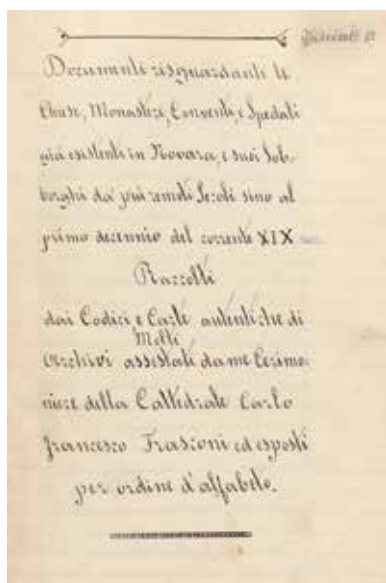 Documenti risguardanti le
Chiese, Monasteri, Conventi, e Spedali
già esistenti in Novara, e suoi Sob-
borghi da' più remoti Secoli sino al
primo decennio del corrente XIX
Raccolti
dai Codici e Carte autentiche di
Molti
Archivi assestati da me Cerimo-
niere della Cattedrale Carlo
Francesco Frasconi ed esposti
per ordine d'alfabeto.